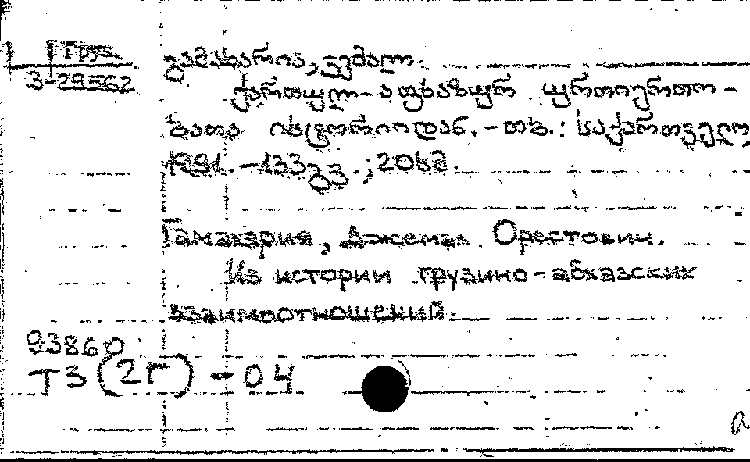 Груз.
3-29562
გამახარია, ჯემალ.
ქართულ-აფხაზურ ურთიერთო-
ბათა ისტორიიდან. - თბ.: საქართველო,
1991. - 133 გვ.; 20 სმ.
Гамахария, Джемал Орестович.
Из истории грузино-абхазских
взаимоотношений.
93860
Т3(2Г)-04